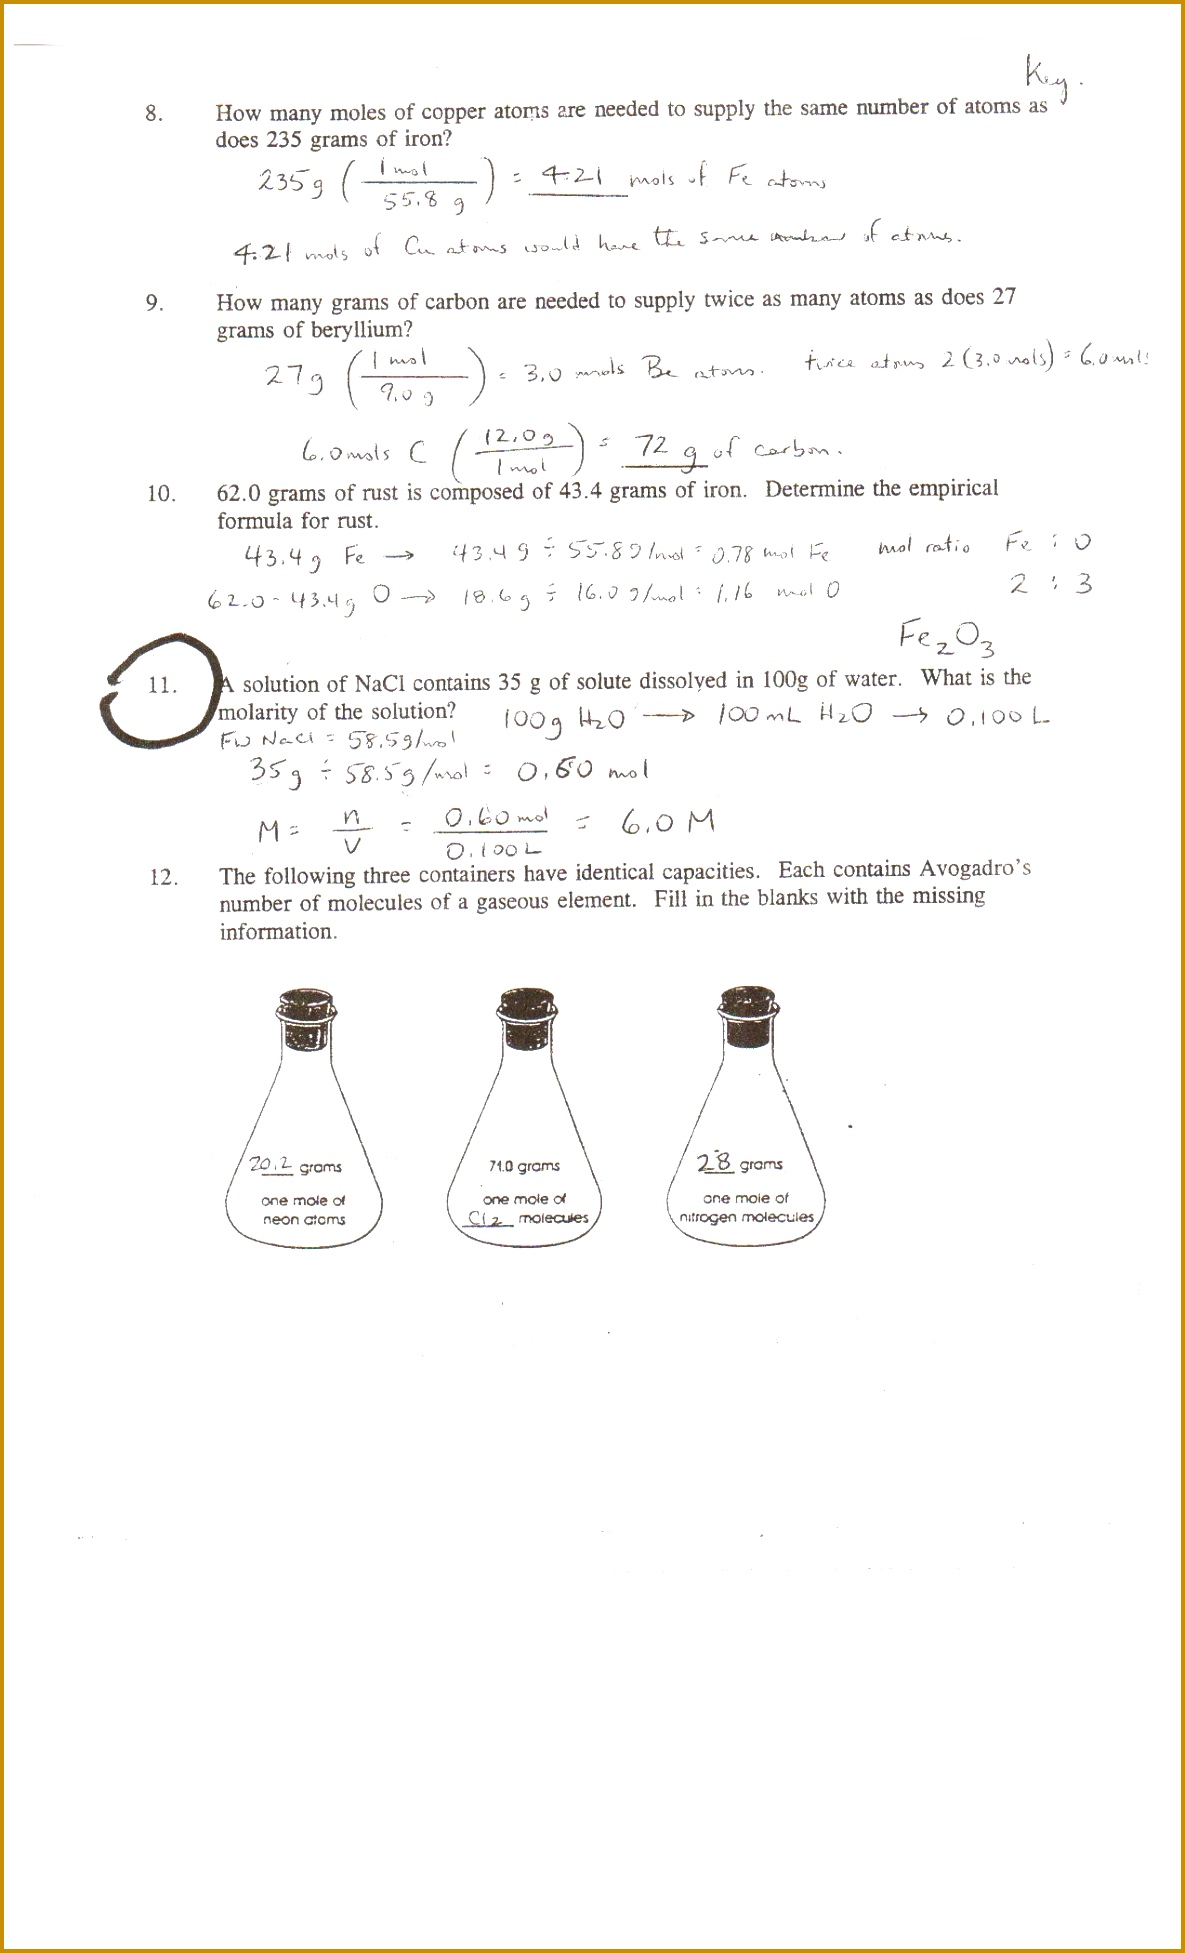 Key.
8. How many moles of copper atoms are needed to supply the same number of atoms as
does 235 grams of iron?
235 g ( 1 mol / 55.8 g ) = 4.21 mols of Fe atoms
4.21 mols of Cu atoms would have the same number of atoms.
9. How many grams of carbon are needed to supply twice as many atoms as does 27
grams of beryllium?
27 g ( 1 mol / 9.0 g ) = 3.0 mols Be atoms. twice atoms 2 (3.0 mols) = 6.0 mols
6.0 mols C ( 12.0 g / 1 mol ) = 72 g of carbon.
10. 62.0 grams of rust is composed of 43.4 grams of iron. Determine the empirical
formula for rust.
43.4 g Fe → 43.4 g ÷ 55.8 g/mol = 0.78 mol Fe mol ratio Fe : O
62.0 - 43.4 g O → 18.6 g ÷ 16.0 g/mol = 1.16 mol O 2 : 3
Fe₂O₃
11. A solution of NaCl contains 35 g of solute dissolved in 100g of water. What is the
molarity of the solution? 100 g H₂O → 100 mL H₂O → 0.100 L
FW NaCl = 58.5 g/mol
35 g ÷ 58.5 g/mol = 0.60 mol
M = n / V = 0.60 mol / 0.100 L = 6.0 M
12. The following three containers have identical capacities. Each contains Avogadro's
number of molecules of a gaseous element. Fill in the blanks with the missing
information.
20.2 grams
one mole of
neon atoms
71.0 grams
one mole of
Cl₂ molecules
28 grams
one mole of
nitrogen molecules